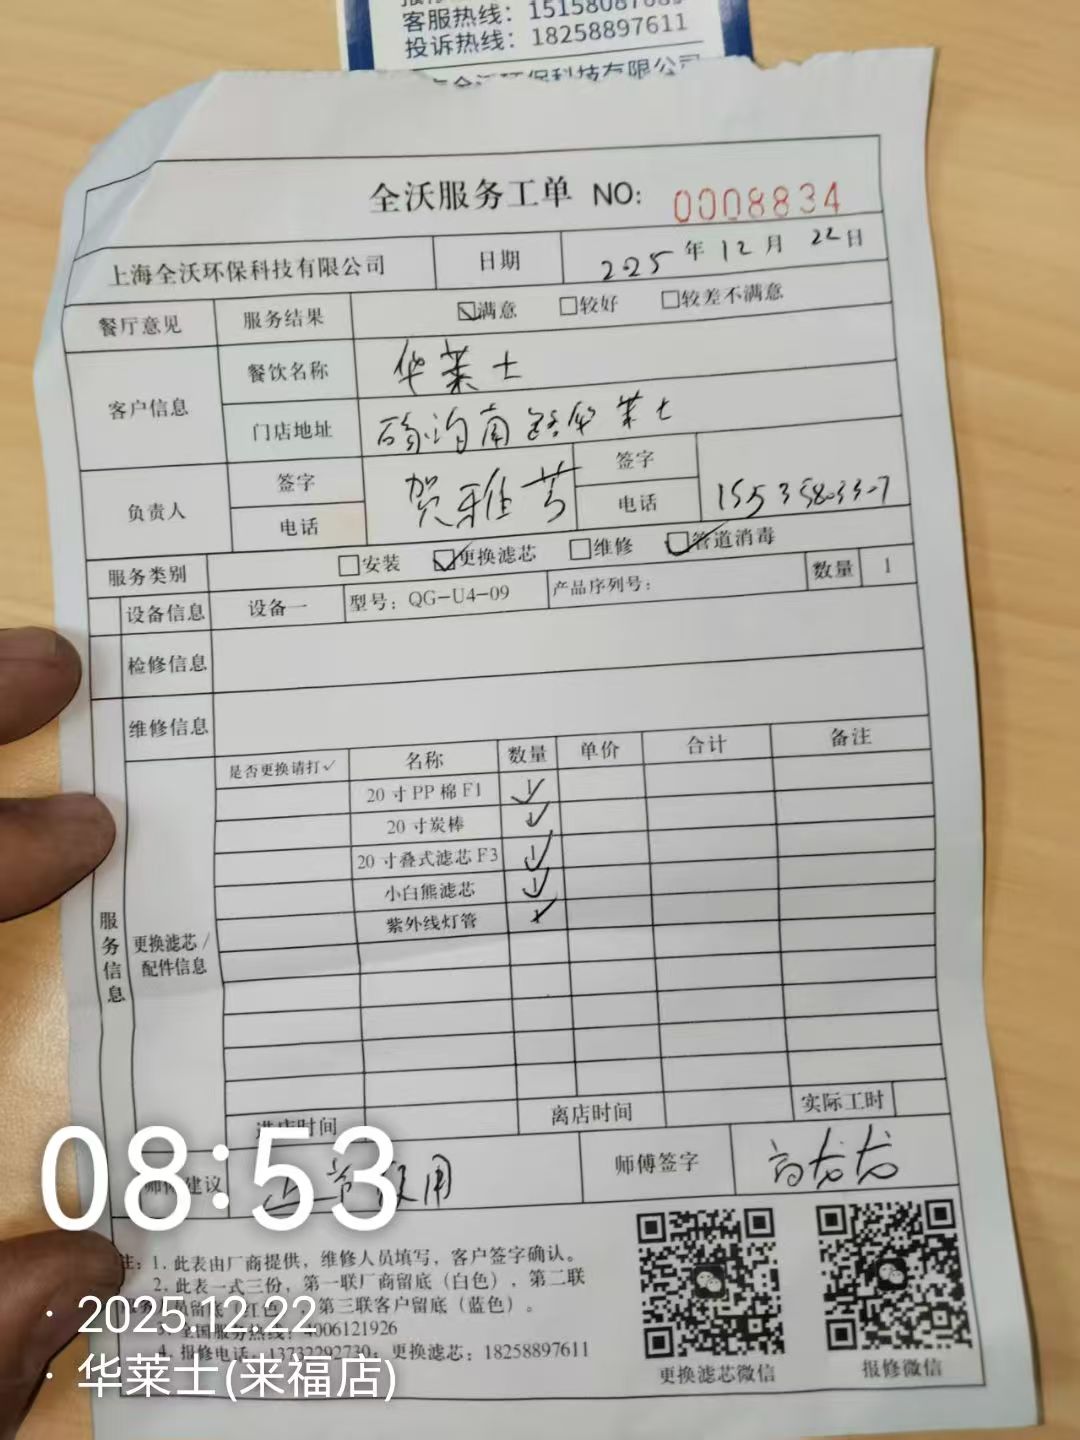 客服热线：
投诉热线：18258897611
全沃服务工单 NO: 0008834
上海全沃环保科技有限公司 日期 2025年12月22日
餐厅意见 服务结果 满意 较好 较差不满意
客户信息 餐饮名称 华莱士
门店地址 南路华莱士
负责人 签字 贺雅芳 签字
电话 电话
服务类别 安装 更换滤芯 维修 管道消毒
设备信息 设备一 型号：QG-U4-09 产品序列号： 数量 1
检修信息
维修信息
服务信息
更换滤芯/配件信息
是否更换请打✓ 名称 数量 单价 合计 备注
20寸PP棉F1 ✓
20寸炭棒 ✓
20寸叠式滤芯F3 ✓
小白熊滤芯 ✓
紫外线灯管 ✓
进店时间 离店时间 实际工时
师傅建议 正常使用 师傅签字 高龙龙
注：1. 此表由厂商提供，维修人员填写，客户签字确认。
2. 此表一式三份，第一联厂商留底（白色），第二联
员留底（红色），第三联客户留底（蓝色）。
3. 全国服务热线：4006121926
4. 报修电话：13732292730；更换滤芯：18258897611
更换滤芯微信 报修微信
08:53
· 2025.12.22
· 华莱士(来福店)